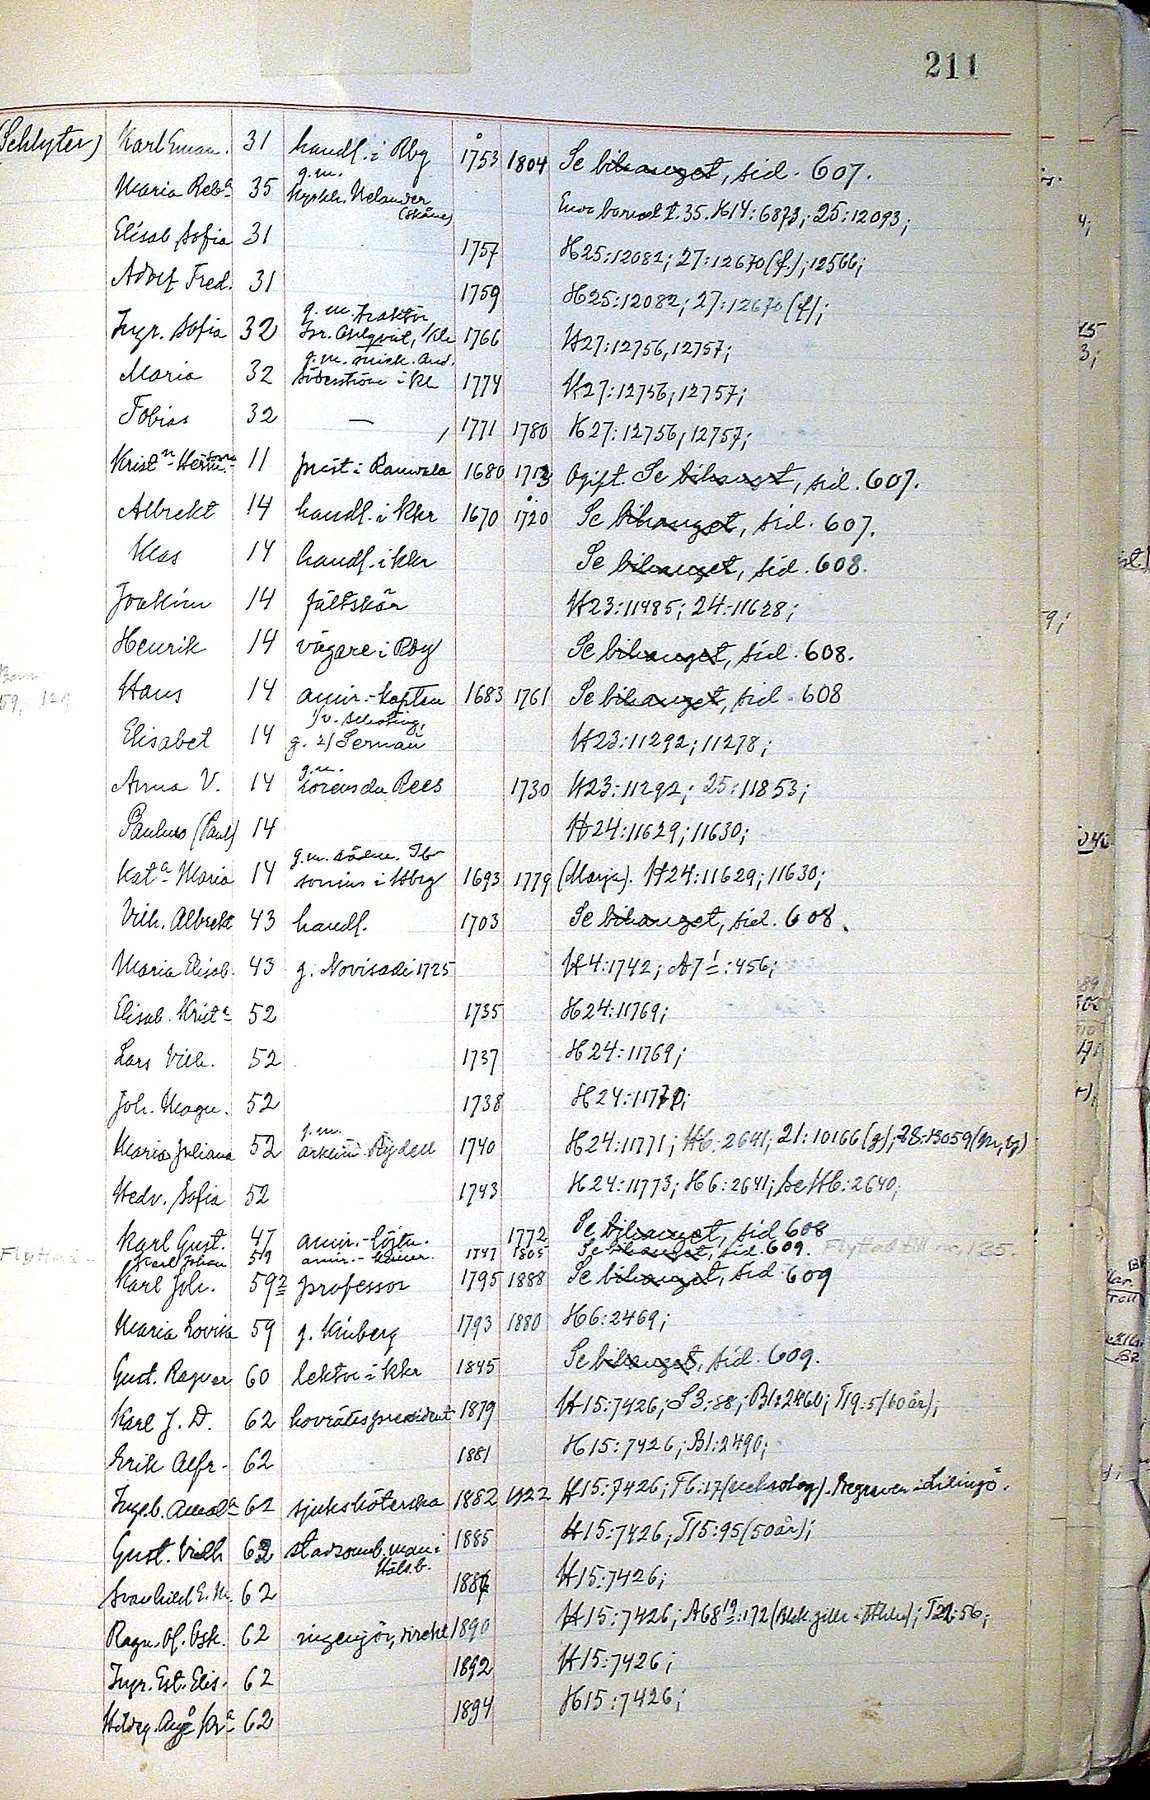 211
(Schlyter) Karl Eman. 31 handl. i Rbg 1753 1804 Se bihanget, sid. 607.
Maria Reb.a 35 g.m. kyrkh. Nelander (Skåne) H14:6873; 25:12093;
Elisab. Sofia 31 1757 H25:12082; 27:12670(f); 12566;
Adolf Fred. 31 1759 H25:12082; 27:12670(f);
Ingr. Sofia 32 g.m. traktör 1766 H27:12756, 12757;
Maria 32 g.m. And. Söderström i Kl 1774 H27:12756, 12757;
Tobias 32 — 1771 1780 H27:12756, 12757;
Krist.n 11 präst i 1680 1713 Ogift. Se bihanget, sid. 607.
Albrekt 14 handl. i Kkr 1670 1720 Se bihanget, sid. 607.
Klas 14 handl. i Kkr Se bihanget, sid. 608.
Joakim 14 fältskär H23:11485; 24:11628;
Henrik 14 vägare i Rbg Se bihanget, sid. 608.
Hans 14 amir.-kapten 1683 1761 Se bihanget, sid. 608
Elisabet 14 g. 2/ H23:11292; 11278;
Anna V. 14 g.m. Lorens du Rees 1730 H23:11292; 25:11853;
Paulus (Paul) 14 H24:11629; 11630;
Kat.a Maria 14 g.m. 1693 1779 (Marja). H24:11629; 11630;
Vilh. Albrekt 43 handl. 1703 Se bihanget, sid. 608.
Maria Elisab. 43 g. Novisadi 1725 H4:1742; A7:456;
Elisab. Krist.a 52 1735 H24:11769;
Lars Vilh. 52 1737 H24:11769;
Joh. Magn. 52 1738 H24:11770;
Maria Juliana 52 g.m. Rydell 1740 H24:11771; H6:2641; 21:10166(g); 28:13059
Hedv. Sofia 52 1743 H24:11773; H6:2641; Se H6:2640;
Karl Gust. 47 amir.-löjtn. 1772 Se bihanget, sid 608
Karl Johan 59 amir.- 1747 1805 Se bihanget, sid. 609. Flyttad till nr. 125.
Karl Joh. 59 2 professor 1795 1888 Se bihanget, sid 609
Maria Lovisa 59 g. Kinberg 1793 1880 H6:2469;
Gust. Ragnar 60 lektor i Kkr 1845 Se bihanget, sid. 609.
Karl J. D. 62 hovrättspresident 1879 H15:7426; S3:88; B1:2460; T19:5(60 år);
Erik Alfr. 62 1881 H15:7426; B1:2490;
Ingeb. 62 sjuksköterska 1882 1922 H15:7426; T6:17 Begraven i Lidingö.
Gust. Vilh 62 stadsomb.man i Häls.b. 1885 H15:7426; T15:95(50 år);
Svanhild E. M. 62 H15:7426;
Ragn. Ol. Osk. 62 ingenjör, direkt 1890 H15:7426; A68 19:172 T22:56;
Ingr. Est. Elis. 62 1892 H15:7426;
62 1894 H15:7426;